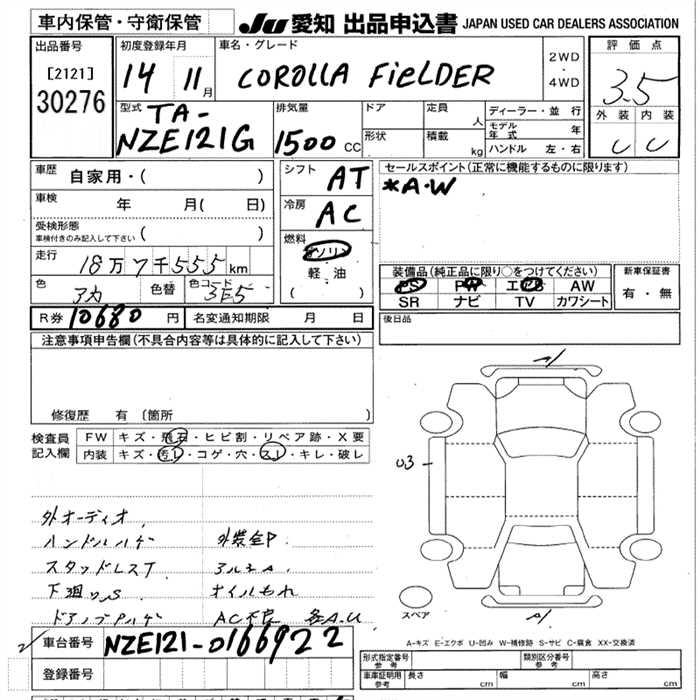 車内保管・守衛保管
JU 愛知 出品申込書 JAPAN USED CAR DEALERS ASSOCIATION
出品番号
[2121]
30276
初度登録年月
14 11月
車名・グレード
COROLLA FiELDER
2WD
・
4WD
評価点
3.5
外装 内装
C C
型式
TA-
NZE121G
排気量
1500 CC
ドア
形状
定員 人
積載 kg
ディーラー・並行
モデル年式 年
ハンドル 左・右
車歴 自家用・( )
車検 年 月( 日)
受検形態
車検付きのみ記入して下さい ( )
走行
18万7千555km
色 アカ
色替
色コード 3E5
シフト AT
冷房 AC
燃料
ガソリン
軽油
( )
セールスポイント(正常に機能するものに限ります)
*A・W
装備品(純正品に限り○をつけてください)
PS PW エアB AW
SR ナビ TV カワシート
新車保証書
有・無
R券 10680 円
名変通知期限 月 日
後日品
注意事項申告欄(不具合内容等は具体的に記入して下さい)
修復歴 有 〔箇所 〕
検査員記入欄
FW キズ・飛石・ヒビ割・リペア跡・X要
内装 キズ・汚レ・コゲ・穴・スレ・キレ・破レ
A1
U3
A1
スペア
外オーディオ
ハンドルハゲ 外装全P
スタッドレスT アルミA
下廻りS オイルもれ
ドアノブPハゲ AC不良 各A.U
A-キズ E-エクボ U-凹み W-補修跡 S-サビ C-腐食 XX-交換済
車台番号 NZE121-0166922
登録番号
形式指定番号
参考
類別区分番号
参考
車庫証明用
参考
長さ cm
幅 cm
高さ cm